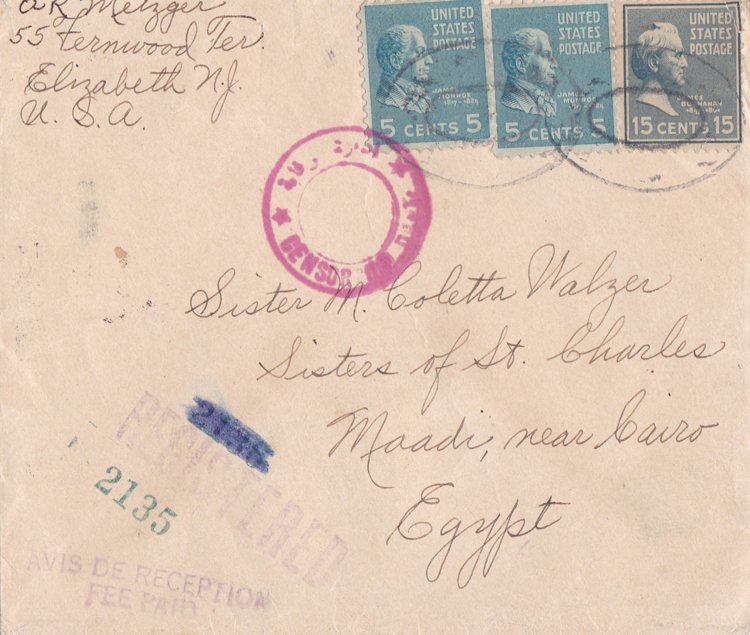 AR Metzger
55 Fernwood Ter.
Elizabeth N.J.
U. S. A.
UNITED STATES POSTAGE
JAMES MONROE
1817-1825
5 CENTS 5
UNITED STATES POSTAGE
JAMES MONROE
5 CENTS 5
UNITED STATES POSTAGE
JAMES BUCHANAN
15 CENTS 15
CENSOR
Sister M. Coletta Walzer
Sisters of St. Charles
Maadi, near Cairo
Egypt
REGISTERED
2135
AVIS DE RECEPTION
FEE PAID